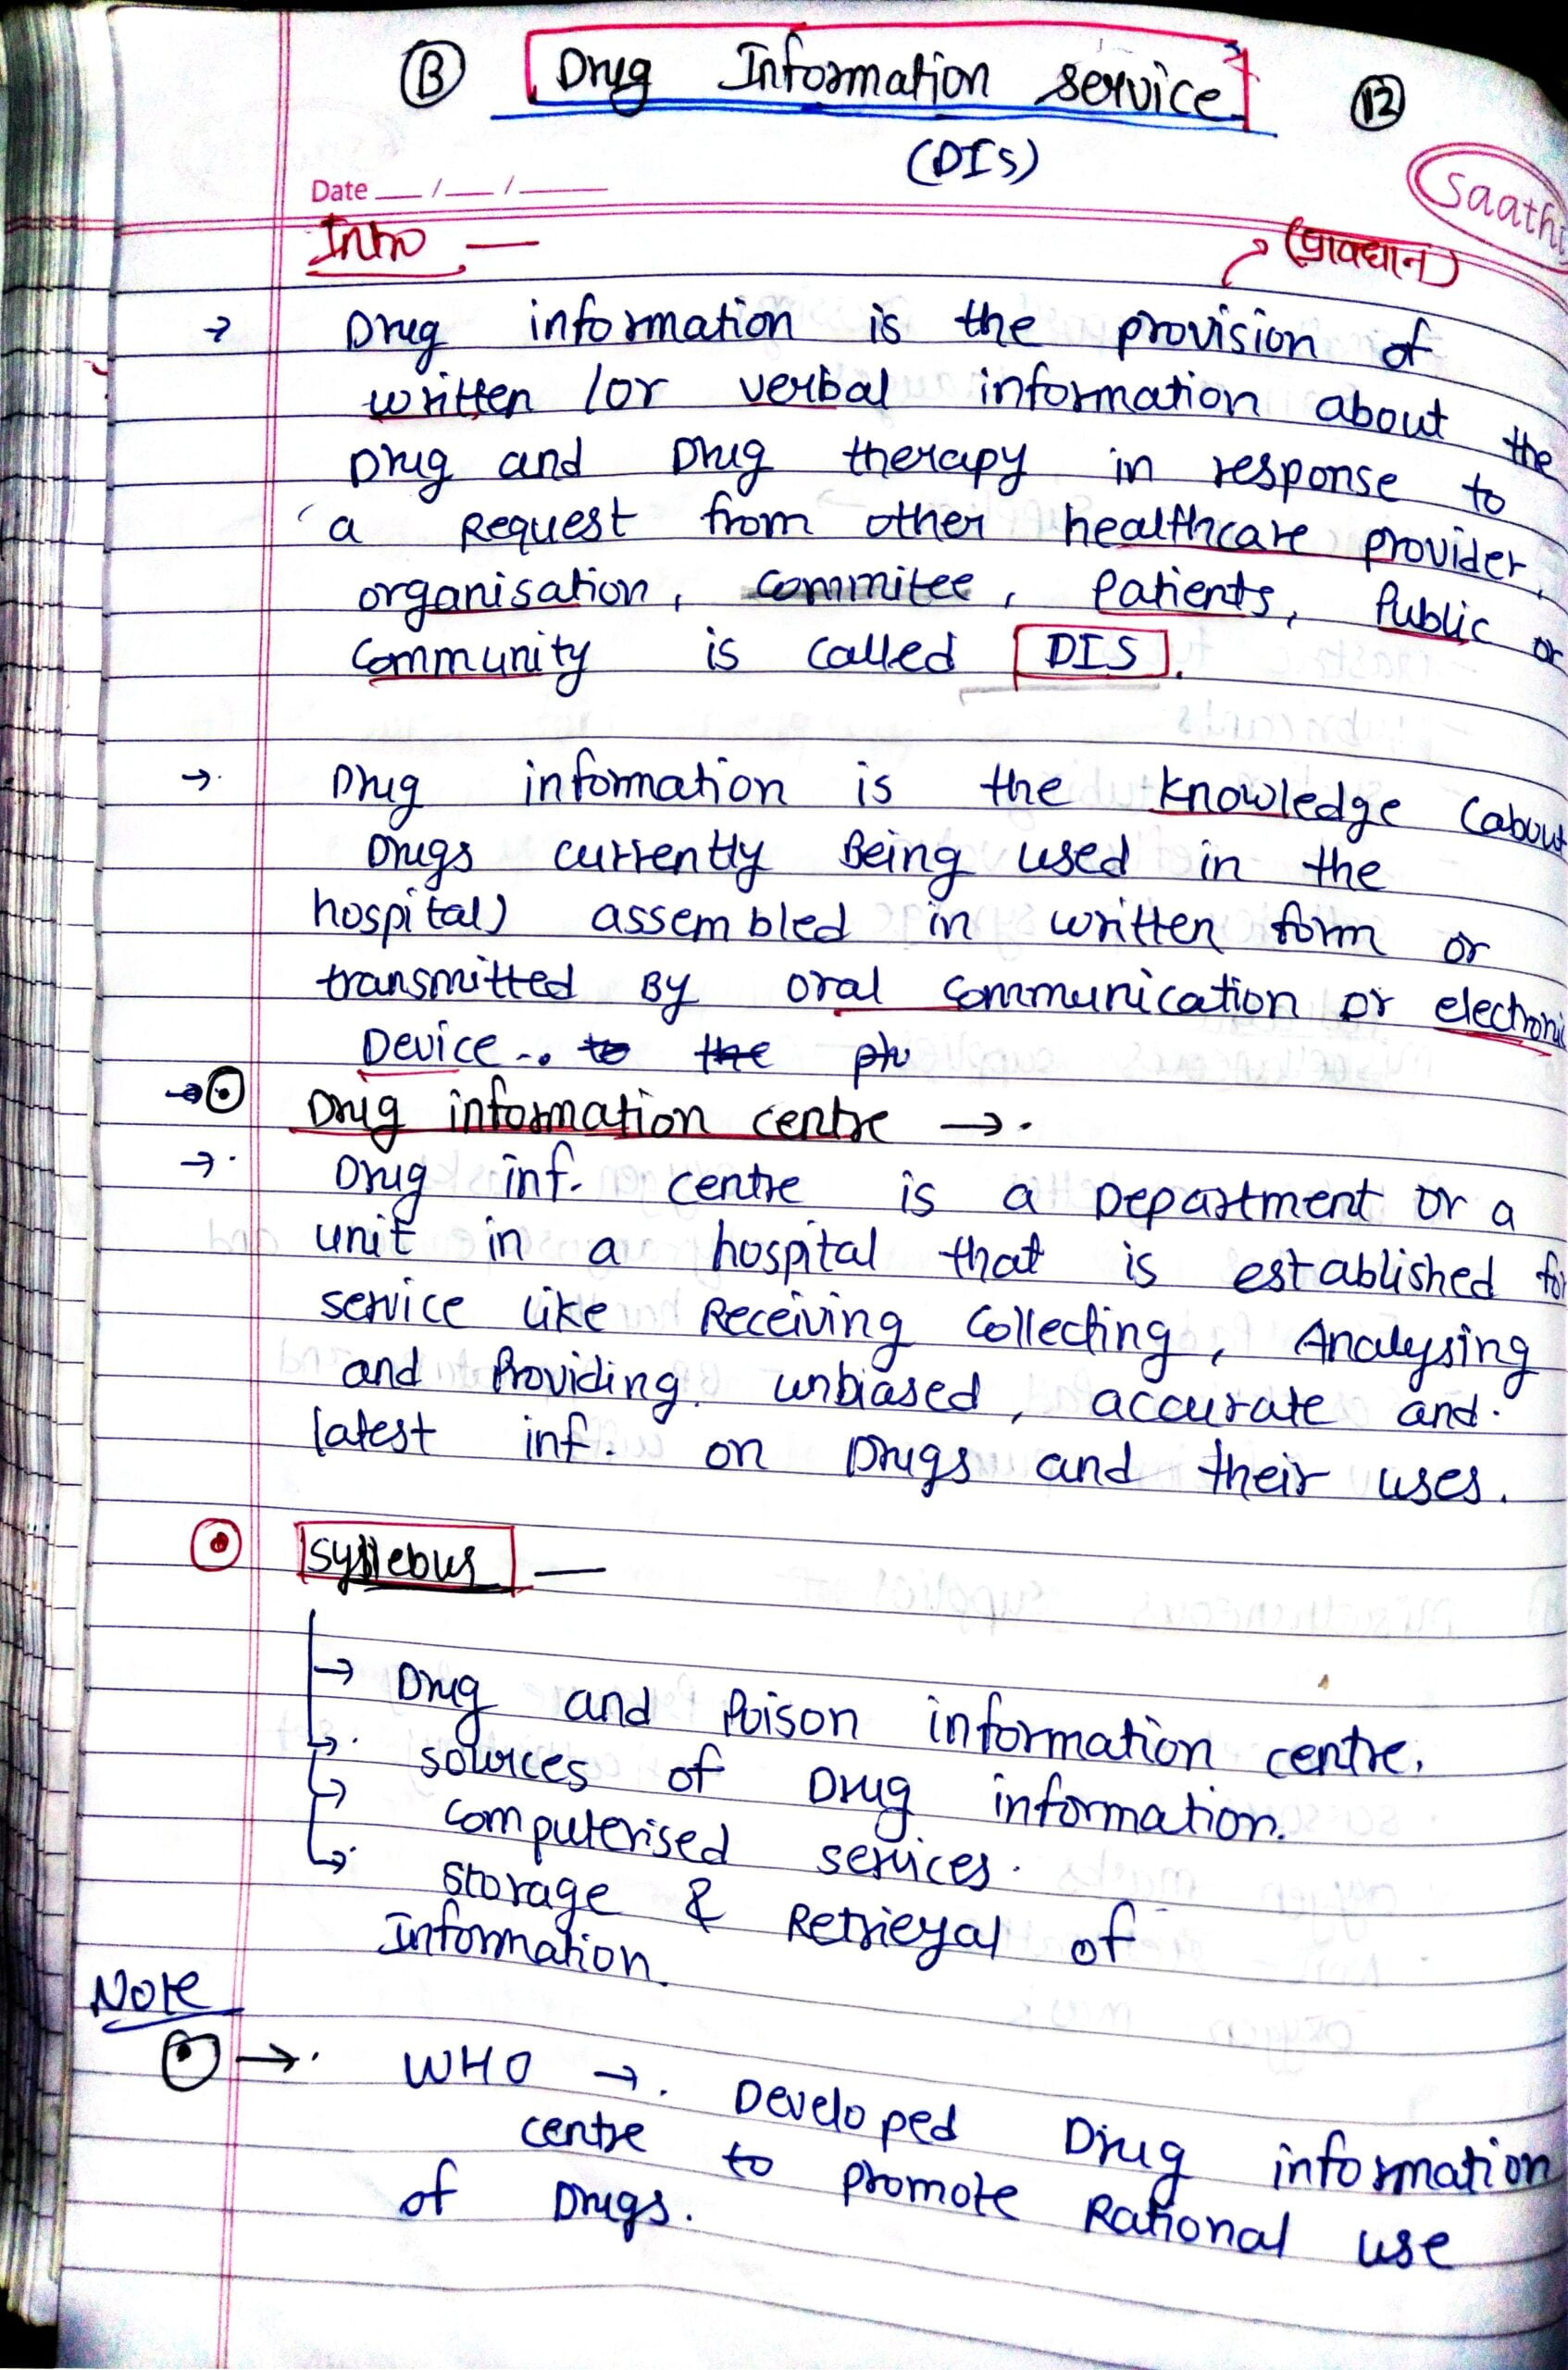 B Drug Information service 12
(DIS)
Saathi
Date __/__/____
Intro — (प्रावधान)
→ Drug information is the provision of
written /or verbal information about the
Drug and Drug therapy in response to
a Request from other healthcare provider,
organisation, commitee, Patients, Public or
community is called DIS.
→ Drug information is the knowledge (about
Drugs currently Being used in the
hospital) assembled in written form or
transmitted By oral communication or electronic
Device.. to the
→ Drug information centre →.
→ Drug inf. centre is a Department or a
unit in a hospital that is established for
service like Receiving Collecting, Analysing
and Providing. unbiased, accurate and.
latest inf. on Drugs and their uses.
Syllebus —
→ Drug and Poison information centre.
→ sources of Drug information.
→ computerised services.
→ Storage & Retrieyal of
Information.
Note
→. WHO →. Developed Drug information
centre to promote Rational use
of Drugs.